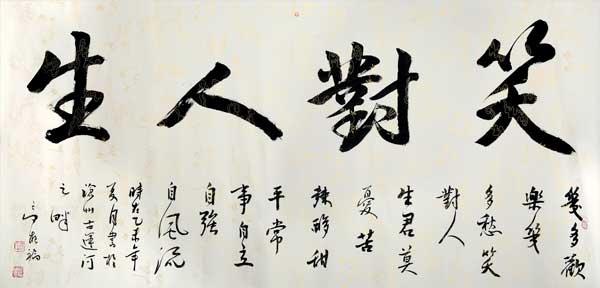 笑對人生
幾多歡
樂幾
多愁笑
對人
生君莫
憂苦
辣酸甜
平常
事自立
自強
自風流
時在乙未年
夏月書於
滄州古運河
之畔